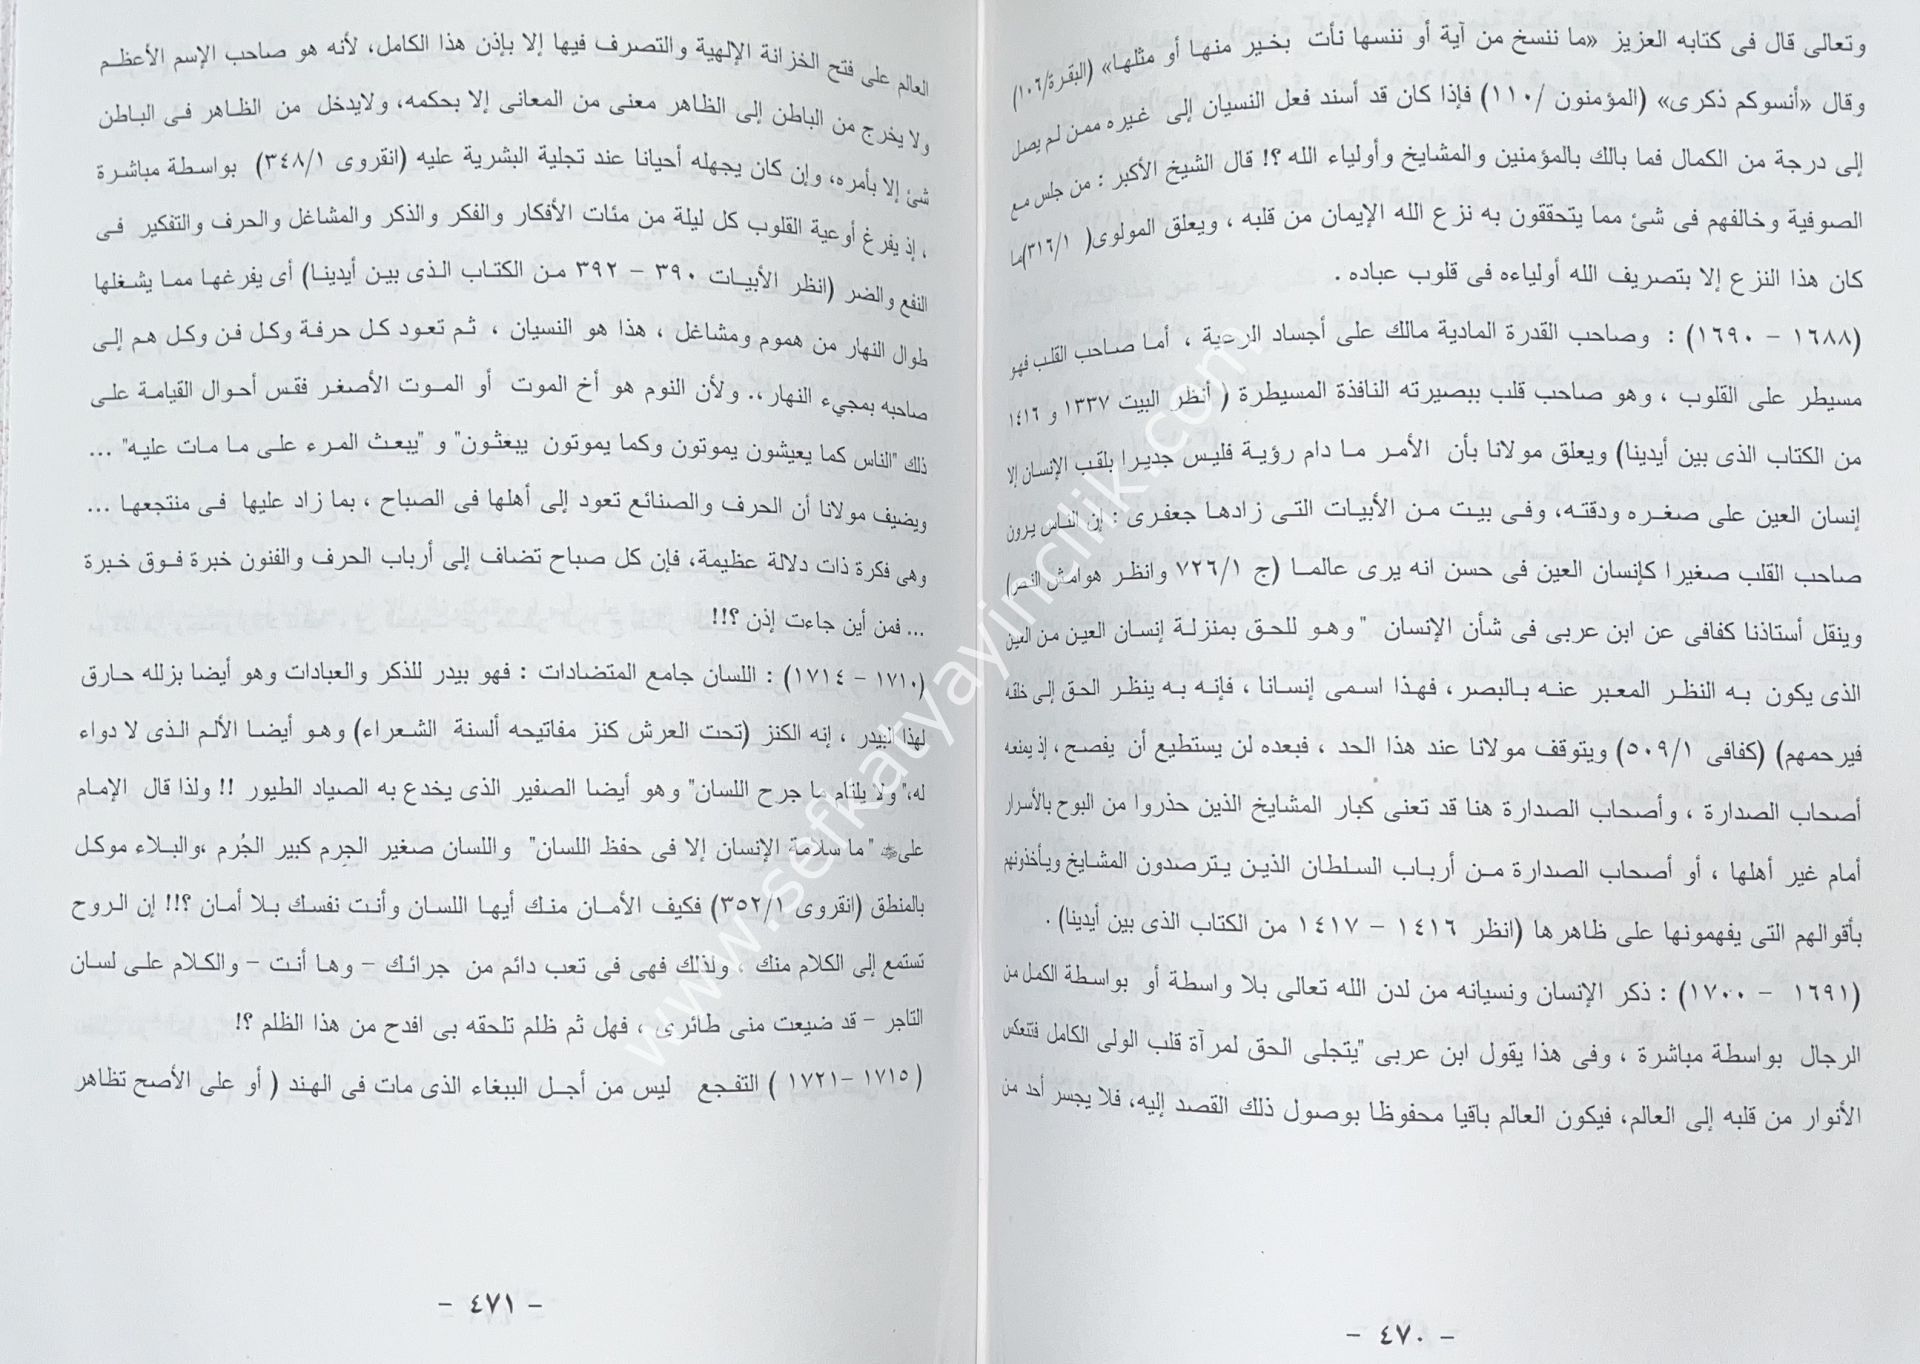 وتعالى قال فى كتابه العزيز «ما ننسخ من آية أو ننسها نأت بخير منها أو مثلها» (البقرة/١٠٦)
وقال «أنسوكم ذكرى» (المؤمنون /١١٠) فإذا كان قد أسند فعل النسيان إلى غيره ممن لم يصل
إلى درجة من الكمال فما بالك بالمؤمنين والمشايخ وأولياء الله ؟! قال الشيخ الأكبر : من جلس مع
الصوفية وخالفهم فى شئ مما يتحققون به نزع الله الإيمان من قلبه ، ويعلق المولوى( ٣١٦/١)ما
كان هذا النزع إلا بتصريف الله أولياءه فى قلوب عباده .
(١٦٨٨ - ١٦٩٠) : وصاحب القدرة المادية مالك على أجساد الرعية ، أما صاحب القلب فهو
مسيطر على القلوب ، وهو صاحب قلب ببصيرته النافذة المسيطرة ( أنظر البيت ١٣٣٧ و ١٤١٦
من الكتاب الذى بين أيدينا) ويعلق مولانا بأن الأمر ما دام رؤية فليس جديرا بلقب الإنسان إلا
إنسان العين على صغره ودقته، وفى بيت من الأبيات التى زادها جعفرى : إن الناس يرون
صاحب القلب صغيرا كإنسان العين فى حسن انه يرى عالما (ج ٧٢٦/١ وانظر هوامش النص)
وينقل أستاذنا كفافى عن ابن عربى فى شأن الإنسان " وهو للحق بمنزلة إنسان العين من العين
الذى يكون به النظر المعبر عنه بالبصر، فهذا اسمى إنسانا ، فإنه به ينظر الحق إلى خلقه
فيرحمهم) (كفافى ٥٠٩/١) ويتوقف مولانا عند هذا الحد ، فبعده لن يستطيع أن يفصح ، إذ يمنعه
أصحاب الصدارة ، وأصحاب الصدارة هنا قد تعنى كبار المشايخ الذين حذروا من البوح بالأسرار
أمام غير أهلها ، أو أصحاب الصدارة من أرباب السلطان الذين يترصدون المشايخ ويأخذونهم
بأقوالهم التى يفهمونها على ظاهرها (انظر ١٤١٦ - ١٤١٧ من الكتاب الذى بين أيدينا) .
(١٦٩١ - ١٧٠٠) : ذكر الإنسان ونسيانه من لدن الله تعالى بلا واسطة أو بواسطة الكمل من
الرجال بواسطة مباشرة ، وفى هذا يقول ابن عربى "يتجلى الحق لمرآة قلب الولى الكامل فتنعكس
الأنوار من قلبه إلى العالم، فيكون العالم باقيا محفوظا بوصول ذلك القصد إليه، فلا يجسر أحد من
- ٤٧٠ -
العالم على فتح الخزانة الإلهية والتصرف فيها إلا بإذن هذا الكامل، لأنه هو صاحب الإسم الأعظم
ولا يخرج من الباطن إلى الظاهر معنى من المعانى إلا بحكمه، ولايدخل من الظاهر فى الباطن
شئ إلا بأمره، وإن كان يجهله أحيانا عند تجلية البشرية عليه (انقروى ٣٤٨/١) بواسطة مباشرة
، إذ يفرغ أوعية القلوب كل ليلة من مئات الأفكار والفكر والذكر والمشاغل والحرف والتفكير فى
النفع والضر (انظر الأبيات ٣٩٠ - ٣٩٢ من الكتاب الذى بين أيدينا) أى يفرغها مما يشغلها
طوال النهار من هموم ومشاغل ، هذا هو النسيان ، ثم تعود كل حرفة وكل فن وكل هم إلى
صاحبه بمجيء النهار،. ولأن النوم هو أخ الموت أو الموت الأصغر فقس أحوال القيامة على
ذلك "الناس كما يعيشون يموتون وكما يموتون يبعثون" و "يبعث المرء على ما مات عليه" ...
ويضيف مولانا أن الحرف والصنائع تعود إلى أهلها فى الصباح ، بما زاد عليها فى منتجعها ...
وهى فكرة ذات دلالة عظيمة، فإن كل صباح تضاف إلى أرباب الحرف والفنون خبرة فوق خبرة
... فمن أين جاءت إذن ؟!!
(١٧١٠ - ١٧١٤) : اللسان جامع المتضادات : فهو بيدر للذكر والعبادات وهو أيضا بزلله حارق
لهذا البيدر ، إنه الكنز (تحت العرش كنز مفاتيحه ألسنة الشعراء) وهو أيضا الألم الذى لا دواء
له،" ولا يلتام ما جرح اللسان" وهو أيضا الصفير الذى يخدع به الصياد الطيور !! ولذا قال الإمام
على " ما سلامة الإنسان إلا فى حفظ اللسان" واللسان صغير الجِرم كبير الجُرم ،والبلاء موكل
بالمنطق (انقروى ٣٥٢/١) فكيف الأمان منك أيها اللسان وأنت نفسك بلا أمان ؟!! إن الروح
تستمع إلى الكلام منك ، ولذلك فهى فى تعب دائم من جرائك - وها أنت - والكلام على لسان
التاجر - قد ضيعت منى طائرى ، فهل ثم ظلم تلحقه بى افدح من هذا الظلم ؟!
( ١٧١٥ -١٧٢١ ) التفجع ليس من أجل الببغاء الذى مات فى الهند ( أو على الأصح تظاهر
- ٤٧١ -
www.sefkatyayincilik.com